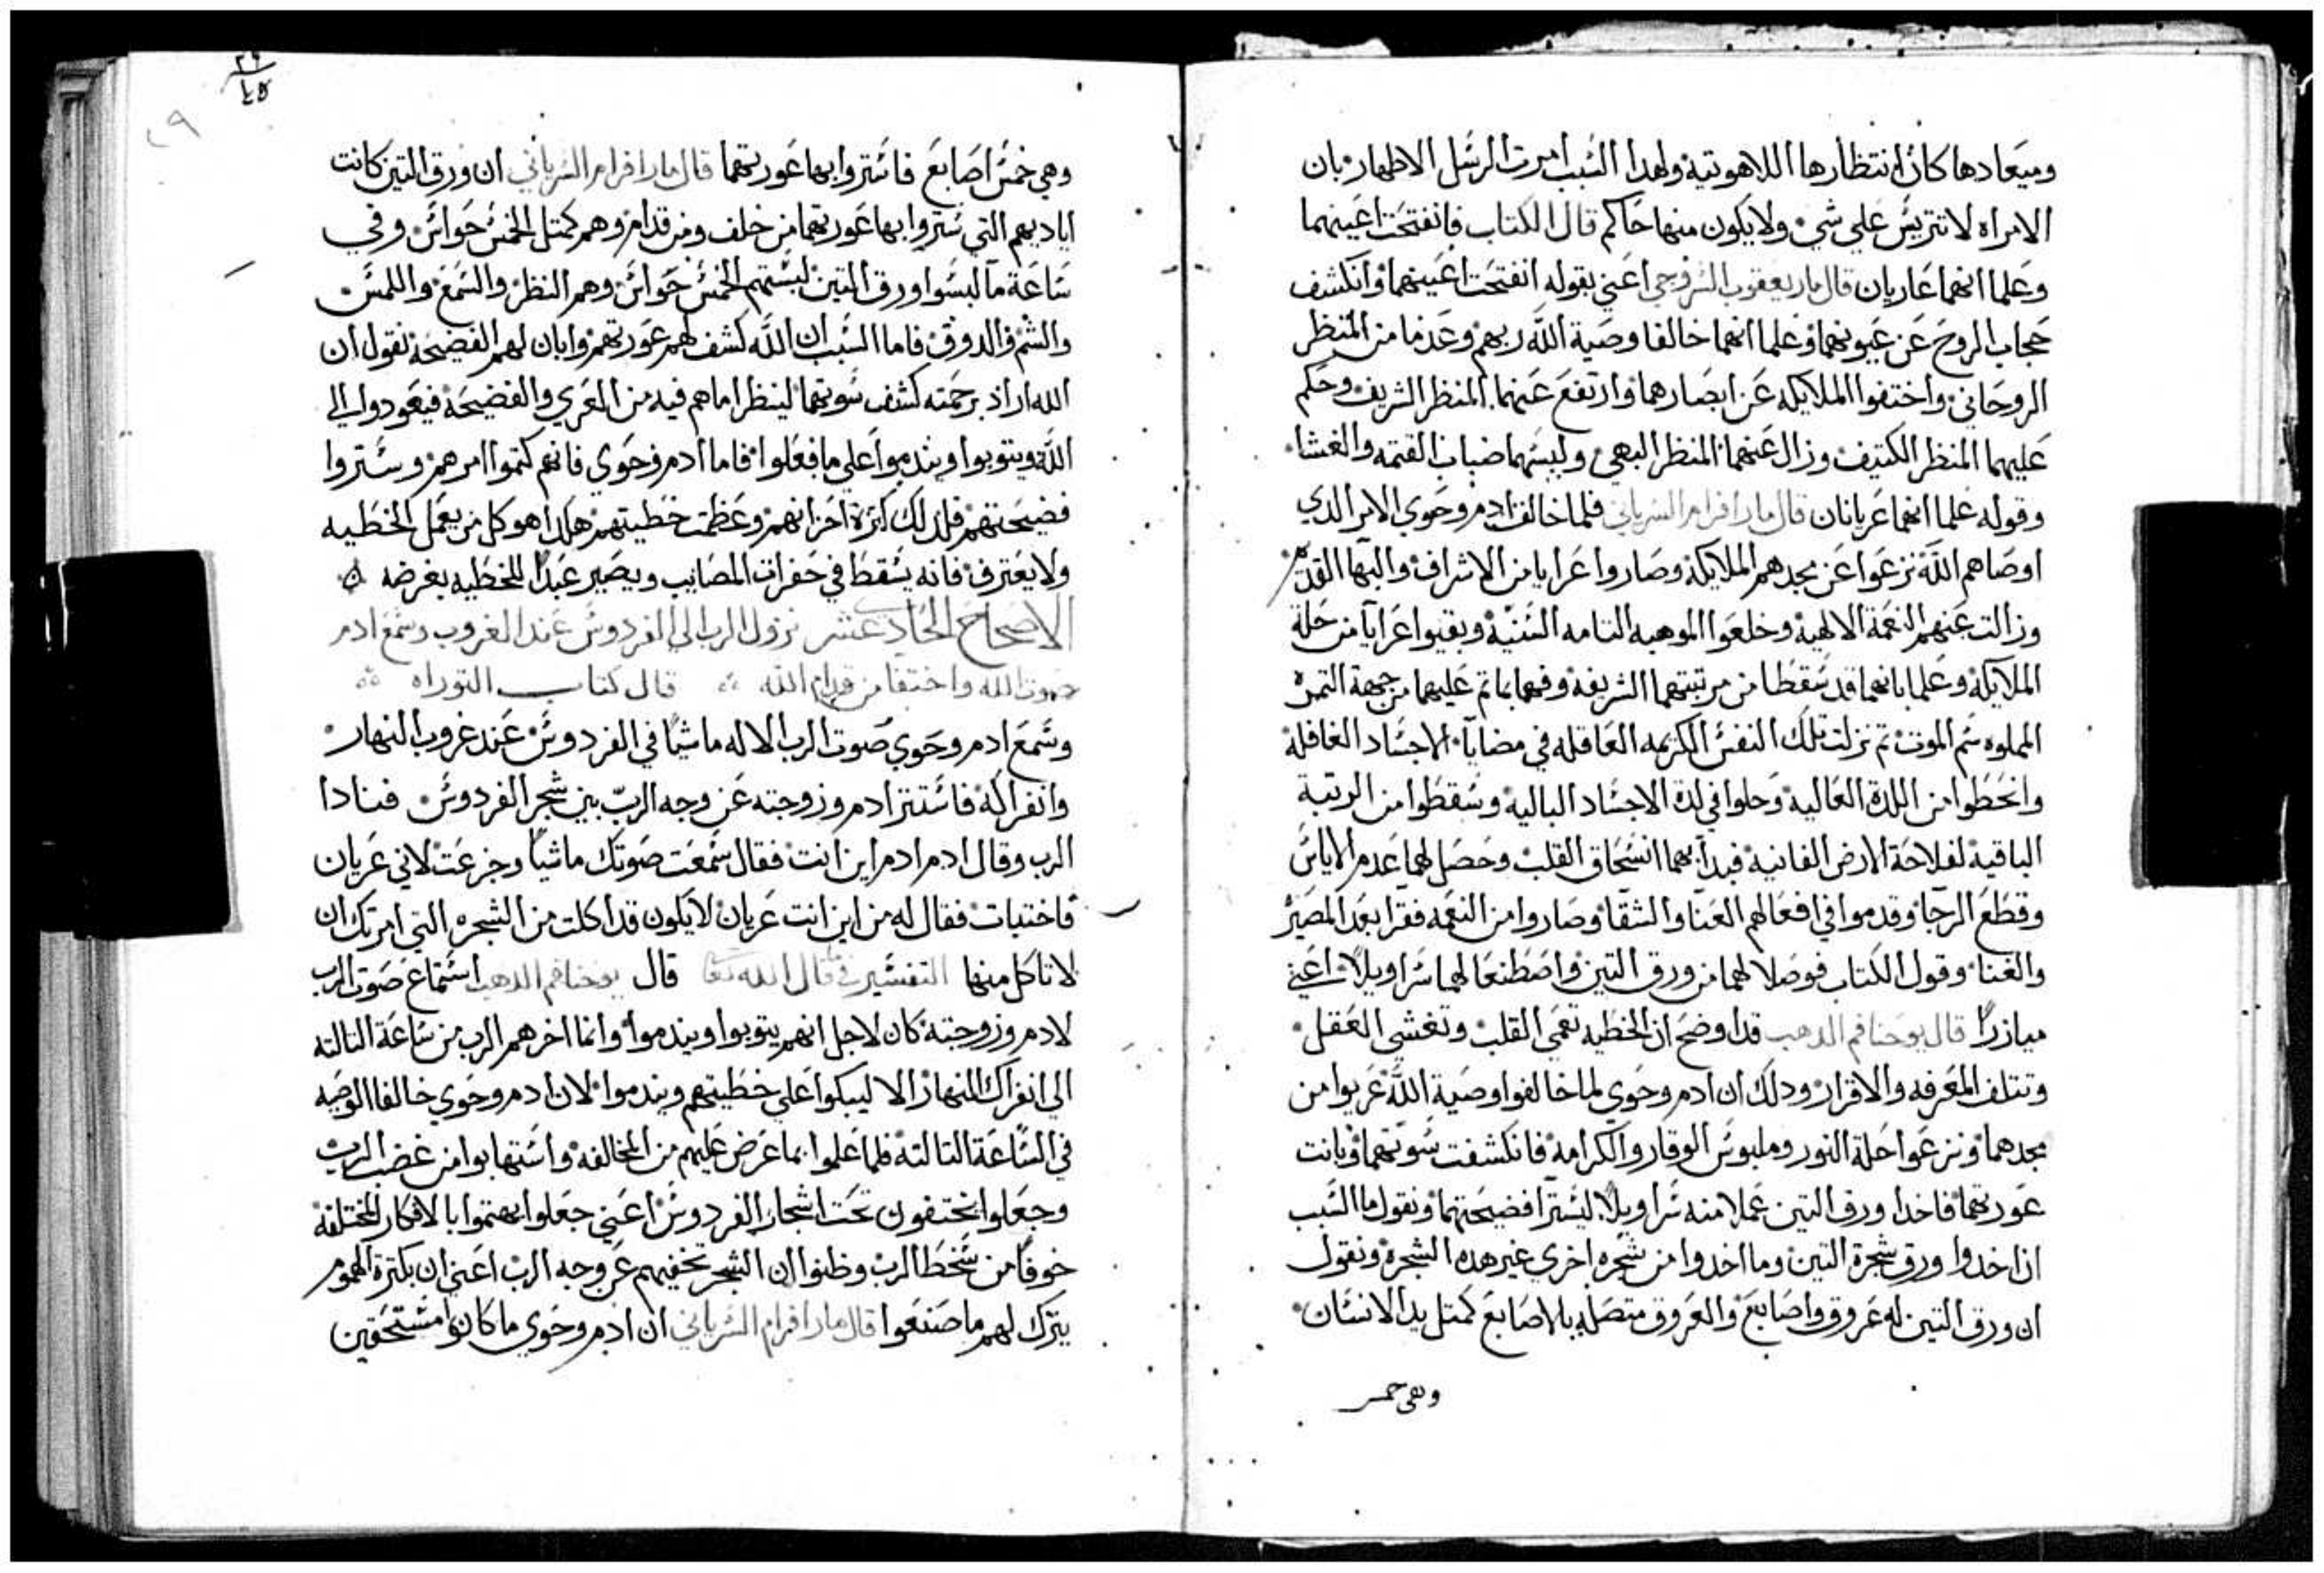 وميعادها كان انتظارها اللاهوتيه ولهدا السبب امرت الرسل الاطهار بان
الامراه لا تتريس علي شي ولا يكون منها حاكم قال الكتاب فانفتحت اعينهما
وعلما انهما عاريان قال مار يعقوب السروجي اعني بقوله انفتحت اعينهما وانكشف
حجاب الروح عن عيونهما وعلما انهما خالفا وصية الله ربهم وعدما من المنظر
الروحاني واختفوا الملايكه عن ابصارهما وارتفع عنهما المنظر الشريف وحكم
عليهما المنظر الكتيف وزال عنهما المنظر البهي ولبسهما ضباب القتمه والغشا
وقوله علما انهما عريانان قال مار افرام السرياني فلما خالف ادم وحوي الامر الدي
اوصاهم الله نزعوا عن مجدهم الملايكة وصاروا عرايا من الاشراف والبها القدس
وزالت عنهم النعمة الالهية وخلعوا الموهبه التامه السنية وبقيوا عرايا من حلة
الملايكة وعلما بانهما قد سقطا من مرتبتهما الشريفة وفهما بما تم عليهما من جهة التمرة
المملوه سم الموت تم نزلت تلك النفس الكريمه العاقله في مضايا الاجساد الغافلة
وانحطوا من اللدة العاليه وحلوا في لدة الاجساد الباليه وسقطوا من الرتبة
الباقية لفلاحة الارض الفانيه فبدا بهما انسحاق القلب وحصل لهما عدم الاياس
وقطع الرجا وقدموا في افعالهم العنا والشقا وصاروا من النعمه فقرا بعد المصير
والغنا وقول الكتاب فوصلا لهما من ورق التين واصطنعا لهما سراويلا اعني
ميازرا قال يوحنا فم الدهب قد اوضح ان الخطيه تعمي القلب وتغشي العقل
وتتلف المعرفه والاقرار ودلك ان ادم وحوي لما خالفوا وصية الله عريوا من
مجدهما ونزعوا حلة النور وملبوس الوقار والكرامة فانكشفت سوتهما وبانت
عورتهما فاخدا ورق التين عملا منه سراويلا ليسترا فضيحتهما ونقول ما السبب
ان اخدوا ورق شجرة التين وما اخدوا من شجره اخري غير هده الشجرة ونقول
ان ورق التين له عروق واصابع والعروق متصله بالاصابع كمتل يد الانسان
وهي خمس
وهي خمس اصابع فاستروا بها عورتهما قال مار افرام السرياني ان ورق التين كانت
اياديهم التي ستروا بها عورتهما من خلف ومن قدام وهم كمتل الخمس حواس وفي
ساعة ما لبسوا ورق التين لبستهم الخمس حواس وهم النظر والسمع واللمس
والشم والدوق فاما السبب ان الله كشف لهم عورتهم وابان لهم الفضيحة نقول ان
الله اراد برحمته كشف سوتهما لينظرا ما هم فيه من العري والفضيحة فيعودوا الي
الله ويتوبوا ويندموا علي ما فعلوا فاما ادم وحوي فانهم كتموا امرهم وستروا
فضيحتهم فلدلك كترة احزانهم وعظمت خطيتهم هكدا هو كل من يعمل الخطيه
ولا يعترف فانه يسقط في حفرات المصايب ويصير عبدا للخطيه بغرضه
الاصحاح الحادي عشر نزول الرب الي الفردوس عند الغروب وسمع ادم
صوت الله واختفا من قدام الله قال كتاب التوراه
وسمع ادم وحوي صوت الرب الاله ماشيا في الفردوس عند غروب النهار
وانفراكه فاستتر ادم وزوجته عن وجه الرب بين شجر الفردوس فنادا
الرب وقال ادم ادم اين انت فقال سمعت صوتك ماشيا وجزعت لاني عريان
فاختبات فقال له من اين انت عريان لا يكون قد اكلت من الشجره التي امرتك ان
لا تاكل منها التفسير قال الله تعا قال يوحنا فم الدهب استماع صوت الرب
لادم وزوجته كان لاجل انهم يتوبوا ويندموا وانما اخرهم الرب من ساعة التالته
الي انفراك النهار الا ليبكوا علي خطيتهم ويندموا لان ادم وحوي خالفا الوصيه
في الساعة التالته فلما علموا بما عرض عليهم من المخالفه واستهابوا من غضب الرب
وجعلوا يختفون تحت اشجار الفردوس اعني جعلوا يهتموا بالافكار المختلفة
خوفا من سخط الرب وظنوا ان الشجر تخفيهم عن وجه الرب اعني ان بكترة الهموم
يترك لهم ما صنعوا قال مار افرام السرياني ان ادم وحوي ما كانوا مستحقين